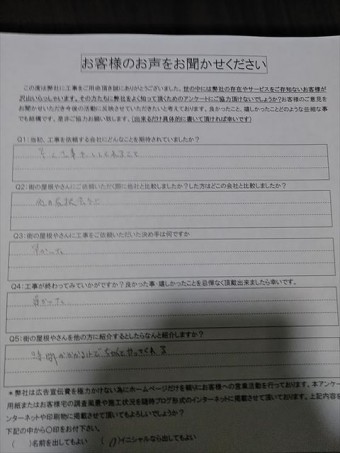 お客様のお声をお聞かせください
この度は弊社に工事をご用命頂き誠にありがとうございました。世の中には弊社の存在やサービスをご存知ないお客様が
沢山いらっしゃいます。その方たちに弊社をよく知って頂くためのアンケートにご協力頂けないでしょうか?お客様のご意見を
お聞かせいただき今後の活動に反映させていただきたいと考えております。良かったこと、嬉しかったことどのような些細な事
でも結構です。是非ご協力お願い致します。(出来るだけ具体的に書いて頂ければ幸いです)
Q1:当初、工事を依頼する会社にどんなことを期待されていましたか?
Q2:街の屋根やさんにご依頼いただく間に他社と比較しましたか?した方はどこの会社と比較しましたか?
Q3:街の屋根やさんに工事をご依頼いただいた決め手は何ですか
早かった
Q4:工事が終わってみていかがですか?良かった事・嬉しかったことを忌憚なく頂戴出来ましたら幸いです。
良かった
Q5:街の屋根やさんを他の方に紹介するとしたらなんと紹介しますか?
*弊社は広告宣伝費を極力かけない為にホームページだけを頼りにお客様への営業活動を行っております。本アンケー
用紙またはお客様宅の調査風景や施工状況を随時ブログ形式のインターネットに掲載させて頂いております。上記内容を
ンターネットや印刷物に掲載させて頂いてもよろしいでしょうか?
下記の中から〇印をお付下さい。
( )名前を出してもよい ( )イニシャルなら出してもよい